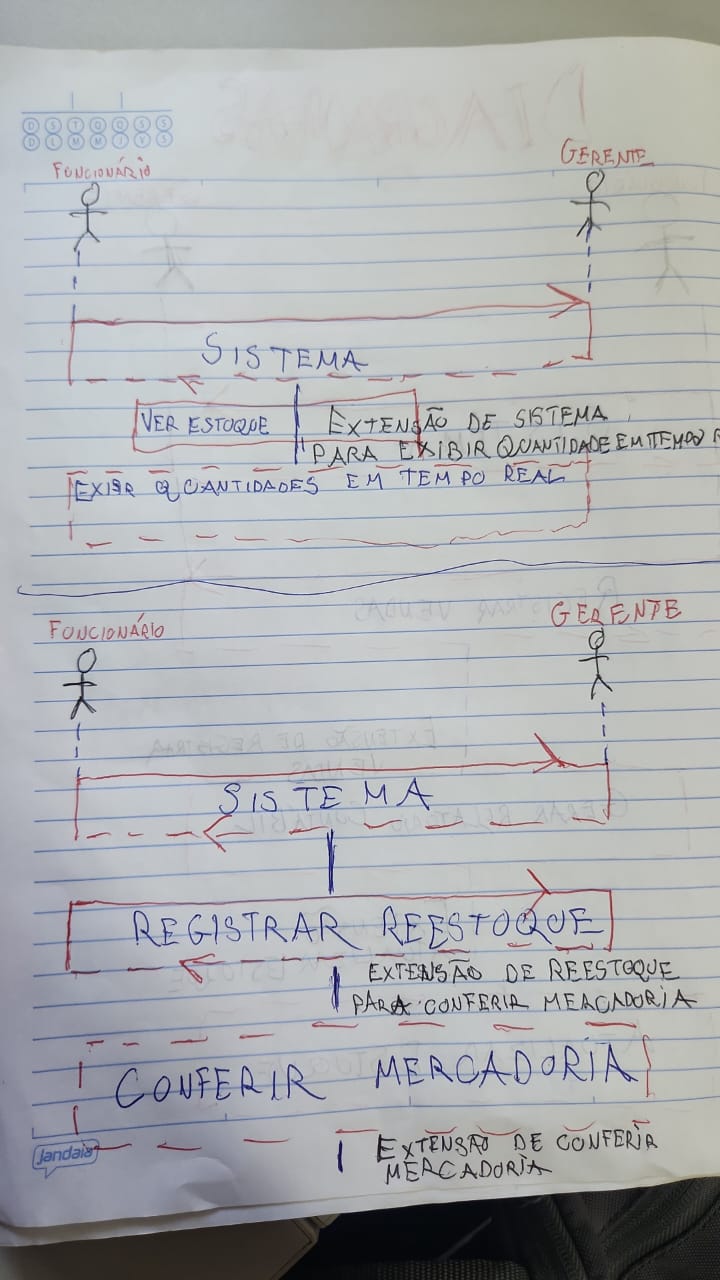 D S T Q Q S S
D L M M J V S
FUNCIONÁRIO
GERENTE
SISTEMA
VER ESTOQUE
EXTENSÃO DE SISTEMA
PARA EXIBIR QUANTIDADE EM TEMPO R
EXIBIR QUANTIDADES EM TEMPO REAL
FUNCIONÁRIO
GERENTE
SISTEMA
REGISTRAR REESTOQUE
EXTENSÃO DE REESTOQUE
PARA CONFERIR MERCADORIA
CONFERIR MERCADORIA
EXTENSÃO DE CONFERIR
MERCADORIA
Jandaia